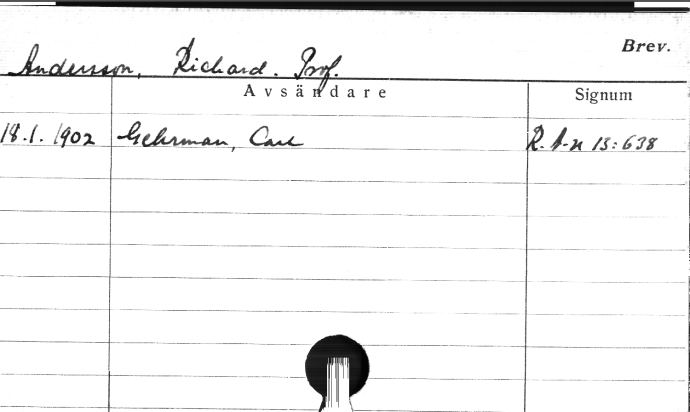 Brev.
Andersson, Richard. Prof.
Avsändare Signum
18.1.1902 Gehrman, Carl R. A-n 13:638